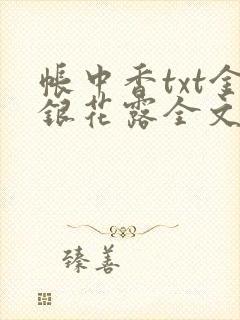 帐中香txt金
银花露全文
臻善